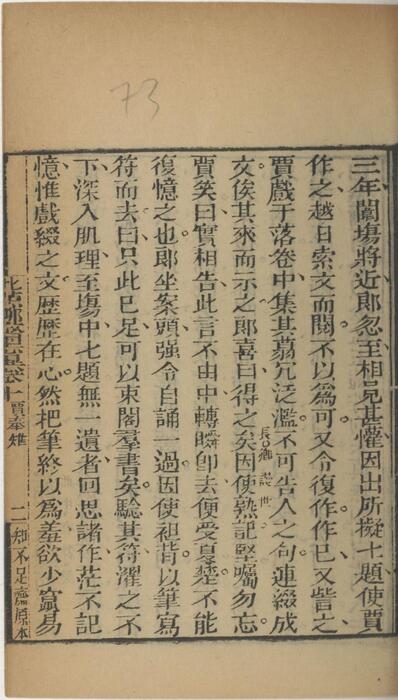 73
三年闈場將近郎忽至相見甚懽因出所擬七題使賈
作之越日索文而閱不以為可又令復作作已又訾之
賈戲于落卷中集其葛冗泛濫不可告人之句連綴成
文俟其來而示之郎喜曰得之矣因使熟記堅囑勿忘
賈笑曰實相告此言不由中轉瞬即去便受夏楚不能
復憶之也郎坐案頭強令自誦一過因使袒背以筆寫
符而去曰只此已足可以束閣羣書矣驗其符濯之不
下深入肌理至場中七題無一遺者回思諸作茫不記
憶惟戲綴之文歷歷在心然把筆終以為羞欲少竄易
卷十 賈奉雉
二 知不足齋原本